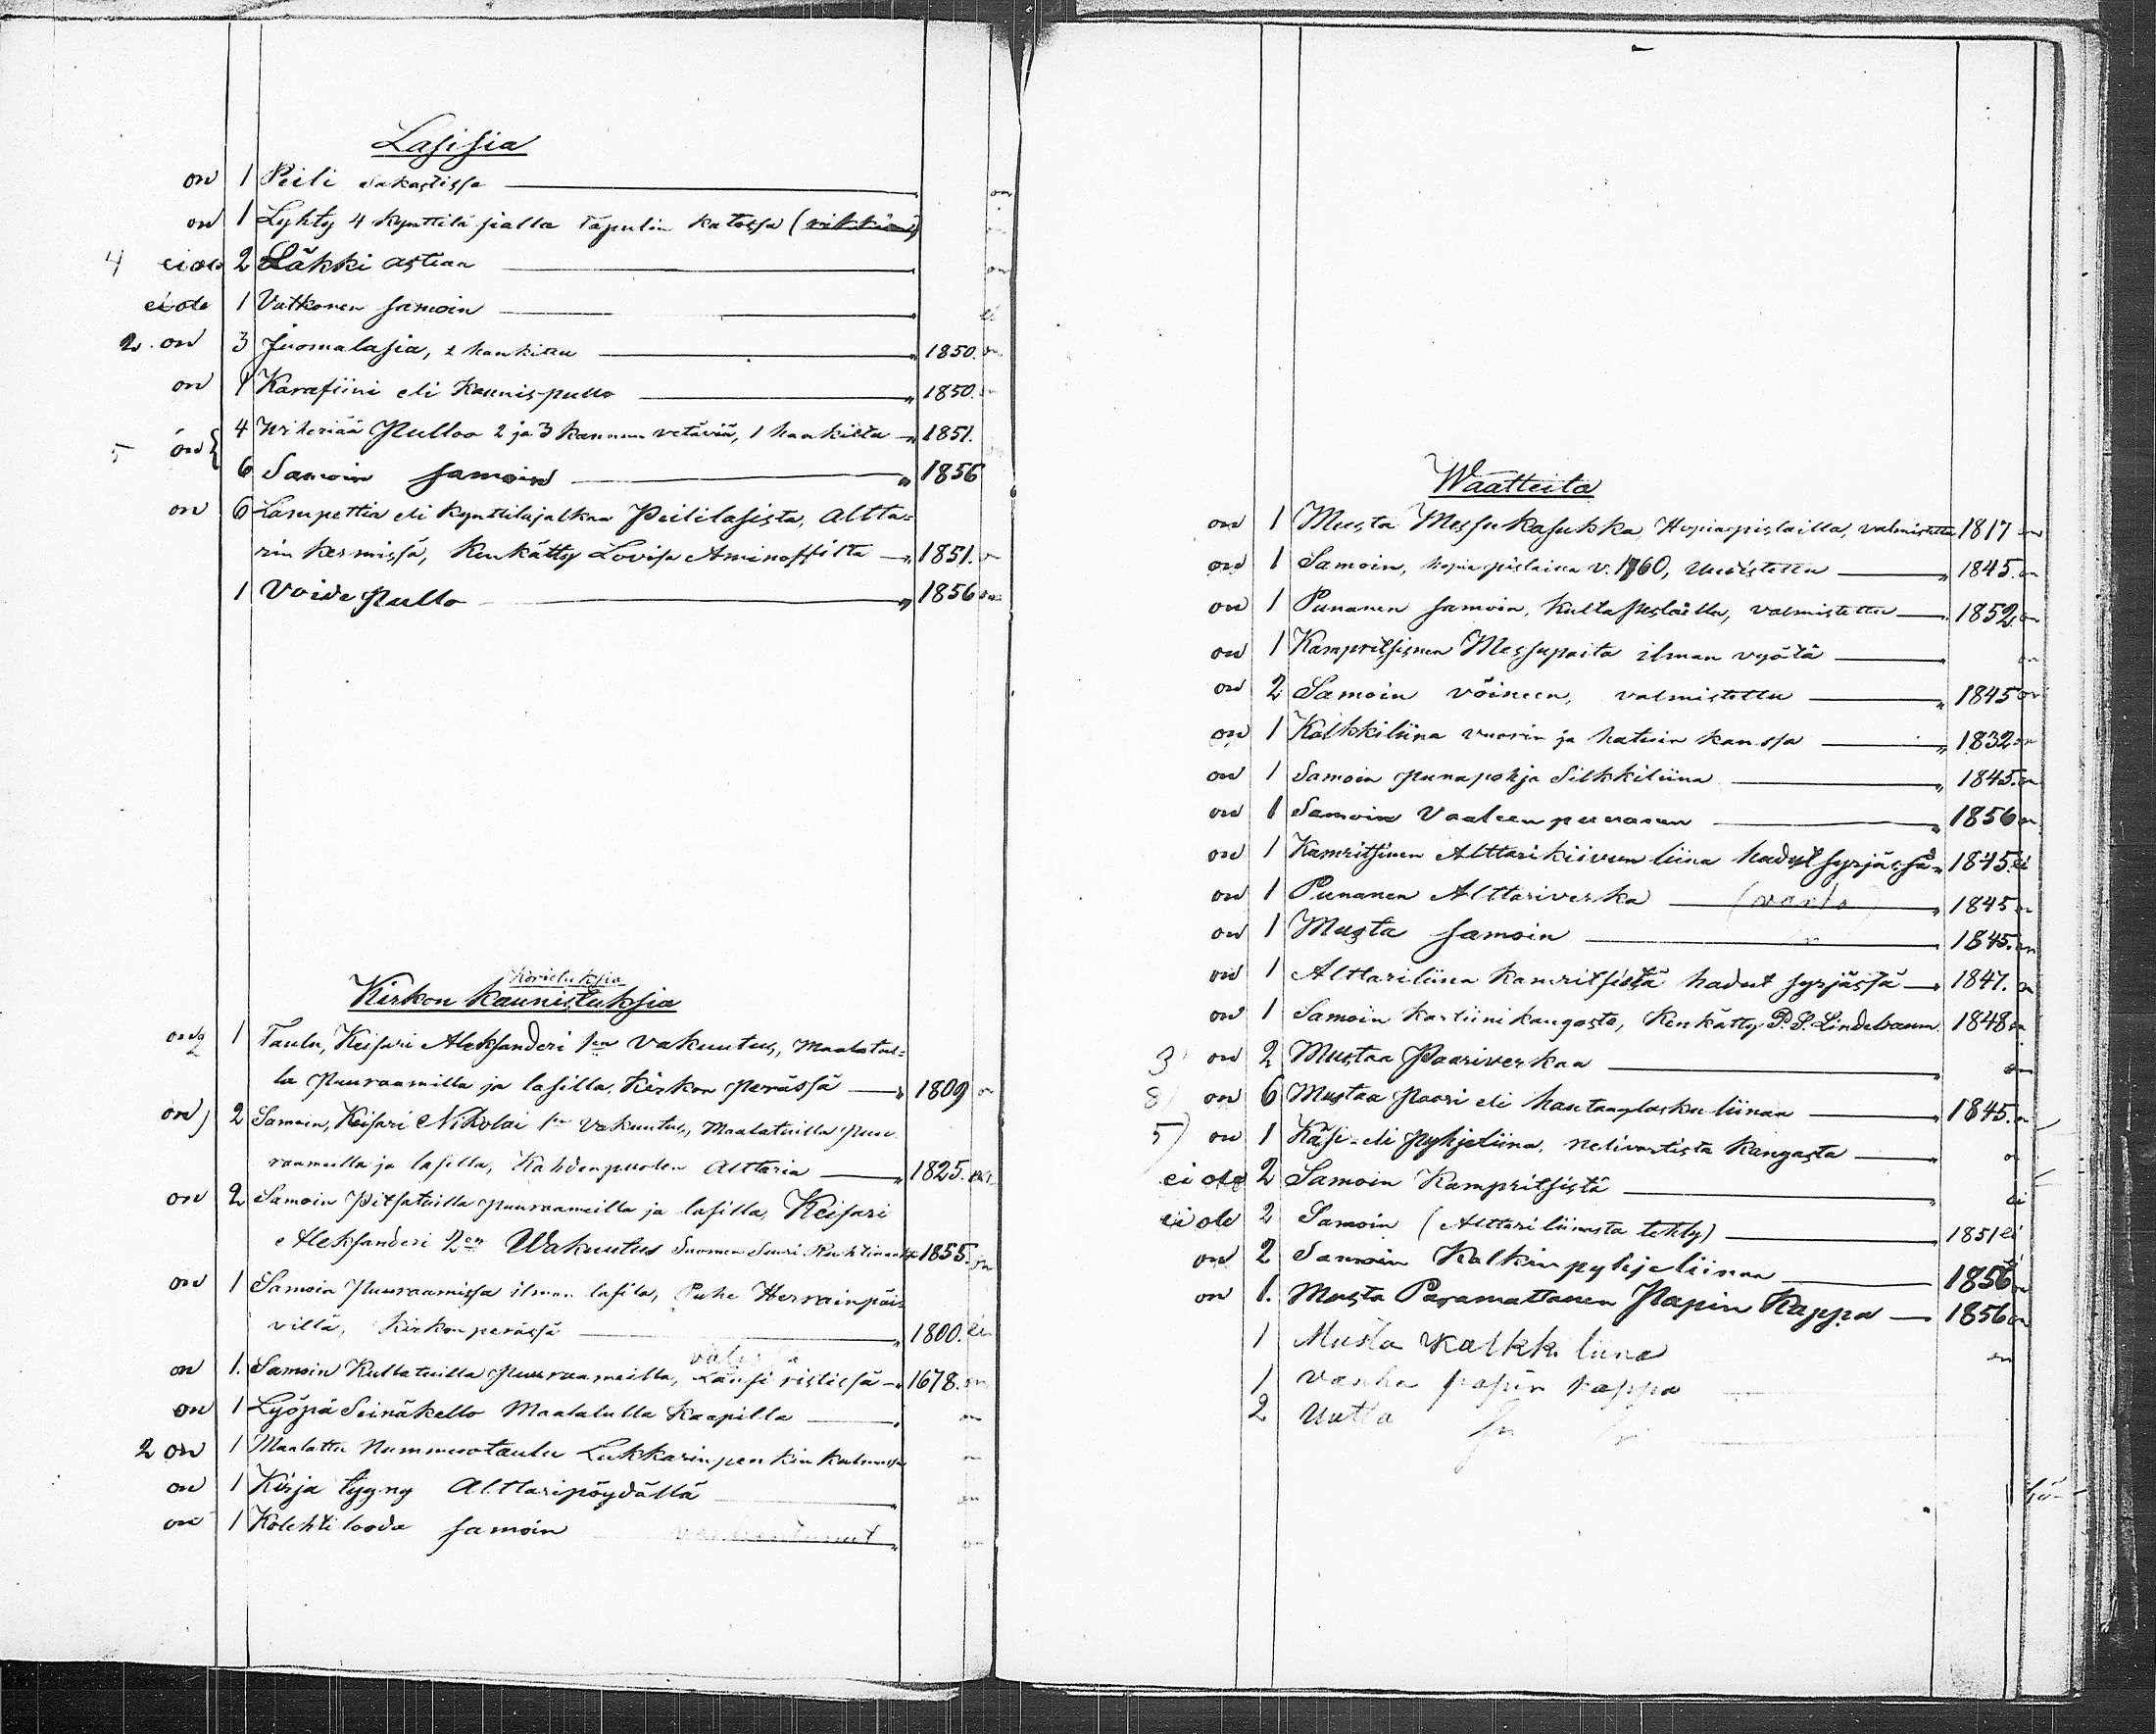 Lasisia
on 1 Peili Sakastissa on
on 1 Lyhty 4 kynttilä sialla Tapulin katossa (rikkinä)
4 ei ole 2 Läkki astiaa on
ei ole 1 Valkonen samoin ei
2. on 3 Juomalasia, 2 hankittu " 1850. on
on 1 Karafiini eli Kaunis pullo " 1850. on
4 Wiheriää Pulloo 2 ja 3 kannun vetäviä, 1 hankittu " 1851.
5 on { 6 Samoin samoin " 1856
on 6 Lasupettia eli kynttiläjalkaa Peililasista, Altta=
rin kermissä, Lovisa Aminoffilta " 1851. on
1 Voide Pullo " 1856 on
Koristuksia
Kirkon kaunistuksia
on 1 Taulu, Keisari Aleksanderi 1en Vakuutus, Maalatul=
la Puuraamilla ja lasilla, Kirkon perässä " 1809 on
on) 2 Samoin, Keisari Nikolai 1en Vakuutus, Maalatuilla Puu
raameilla ja lasilla, Kahdenpuolen Alttaria " 1825. on
on 2 Samoin Petsatuilla Puuraameilla ja lasilla, Keisari
Aleksanderi 2en Wakuutus Suomen Suuri 1855. on
on 1 Samoin Puuraamissa ilman lasita, Puhe Herrainpäi
villä, Kirkon perässä " 1800. ei
on 1. Samoin Kullatuilla Puuraameilla, Länsi ristissä " 1678. on
on 1 Lyöpä Seinäkello Maalatulla Kaapilla on
2 on 1 Maalattu Nummerotaulu Lukkarinpenkin kulmassa
on 1 Kirja tyyny Alttaripöydällä on
on 1 Kolehti looda samoin on
Waatteita
on 1 Musta Messukasukka, Hopiapislailla, valmistettu 1817 on
on 1 Samoin, hopia pislailla v. 1760, Uudistettu " 1845. on
on 1 Punanen samoin, kultapislailla, valmistettu 1852. on
on 1 Kampritsinen Messupaita ilman vyötä on
on 2 Samoin vöineen, valmistettu " 1845 on
on 1 Kalkkiliina vuorin ja hatuin kanssa " 1832 on
on 1 Samoin punapohja Silkkiliina " 1845. on
on 1 Samoin Vaaleen punanen " 1856 on
on 1 Kamritsinen Alttarikiivun liina hadut syrjässä " 1845. ei
on 1 Punanen Alttariverka (vanha) " 1845 on
on 1 Musta samoin " 1845. on
on 1 Alttariliina kamritsistä hadut syrjässä 1847. on
on 1 Samoin Kartiini kangasta, P. S. Lindebaum 1848 on
3) on 2 Mustaa Paariverkaa on
8) on 6 Mustaa Paari eli hautauslasku liinaa 1845. on
5) on 1 Käsi- eli Pyhjeliina, nelivartista kangasta on
ei ole 2 Samoin Kampritsistä ei
ei ole 2 Samoin (Alttariliinasta tehty) 1851 ei
on 2 Samoin Kalkin pyhjeliinaa 1856 on
on 1. Musta Paramattanen Papin Kappa 1856 on
1 Musta Kalkk. liina on
1 Vanha papin kappa
2 Uutta